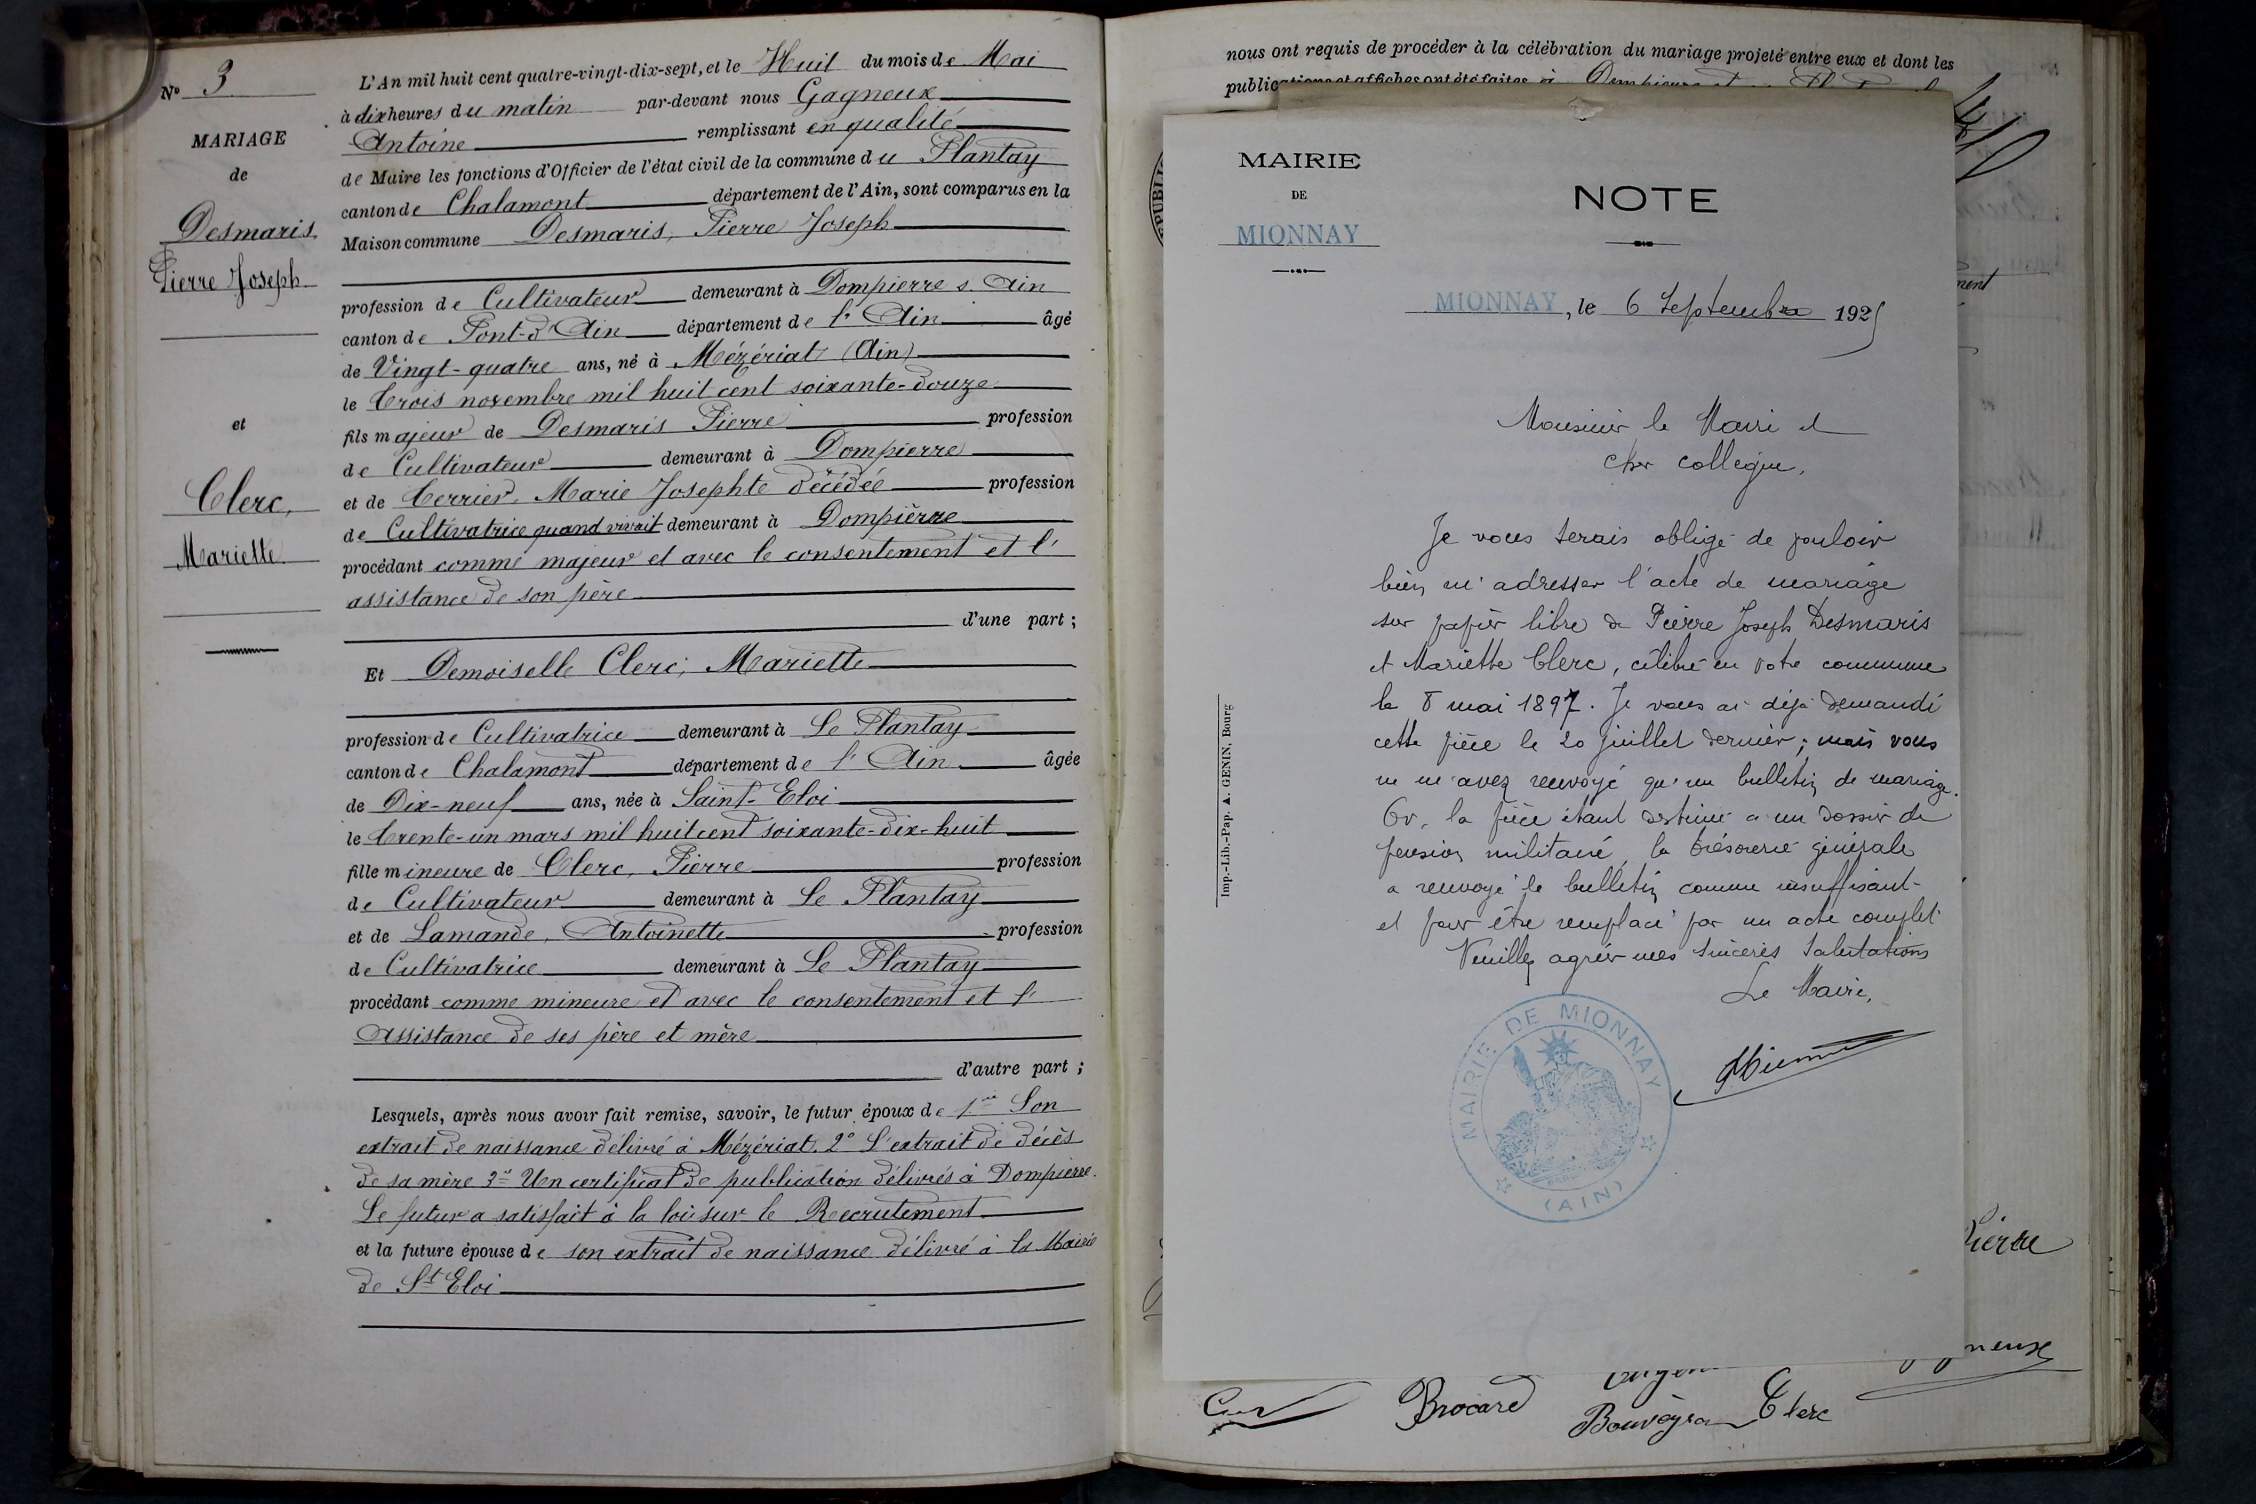 N° 3
MARIAGE
de
Desmaris
Pierre Joseph
et
Clerc,
Mariette
L'An mil huit cent quatre-vingt-dix-sept, et le Huit du mois de Mai
à dix heures du matin par-devant nous Gagneux
Antoine remplissant en qualité
de Maire les fonctions d'Officier de l'état civil de la commune du Plantay
canton de Chalamont département de l'Ain, sont comparus en la
Maison commune Desmaris, Pierre Joseph
profession de Cultivateur demeurant à Dompierre s. Ain
canton de Pont-d'Ain département de l'Ain âgé
de Vingt-quatre ans, né à Mézériat (Ain)
le trois novembre mil huit cent soixante-douze
fils majeur de Desmaris Pierre profession
de Cultivateur demeurant à Dompierre
et de Terrier, Marie Josephte décédée profession
de Cultivatrice quand vivait demeurant à Dompierre
procédant comme majeur et avec le consentement et l'
assistance de son père
d'une part ;
Et Demoiselle Clerc, Mariette
profession de Cultivatrice demeurant à Le Plantay
canton de Chalamont département de l'Ain âgée
de Dix-neuf ans, née à Saint-Eloi
le trente-un mars mil huit cent soixante-dix-huit
fille mineure de Clerc, Pierre profession
de Cultivateur demeurant à Le Plantay
et de Lamande, Antoinette profession
de Cultivatrice demeurant à Le Plantay
procédant comme mineure et avec le consentement et l'
assistance de ses père et mère
d'autre part ;
Lesquels, après nous avoir fait remise, savoir, le futur époux de 1° Son
extrait de naissance délivré à Mézériat. 2° L'extrait de décès
de sa mère 3° Un certificat de publication délivrés à Dompierre.
Le futur a satisfait à la loi sur le Recrutement
et la future épouse de son extrait de naissance délivré à la Mairie
de St Eloi
nous ont requis de procéder à la célébration du mariage projeté entre eux et dont les
publications et affiches ont été faites à Dompierre et
MAIRIE
DE
MIONNAY
NOTE
MIONNAY, le 6 Septembre 1925
Monsieur le Maire et
cher collègue,
Je vous serais obligé de vouloir
bien m'adresser l'acte de mariage
sur papier libre de Pierre Joseph Desmaris
et Mariette Clerc, célébré en votre commune
le 8 mai 1897. Je vous ai déjà demandé
cette pièce le 20 juillet dernier ; mais vous
ne m'avez renvoyé qu'un bulletin de mariage.
Or, la pièce étant destinée à un dossier de
pension militaire, la trésorerie générale
a renvoyé le bulletin comme insuffisant
et pour être remplacé par un acte complet
Veuillez agréer mes sincères salutations
Le Maire,
MAIRIE DE MIONNAY
(AIN)
Imp.-Lib.-Pap. A. GENIN, Bourg
Pierre
Brocard
Bouveyron
Clerc